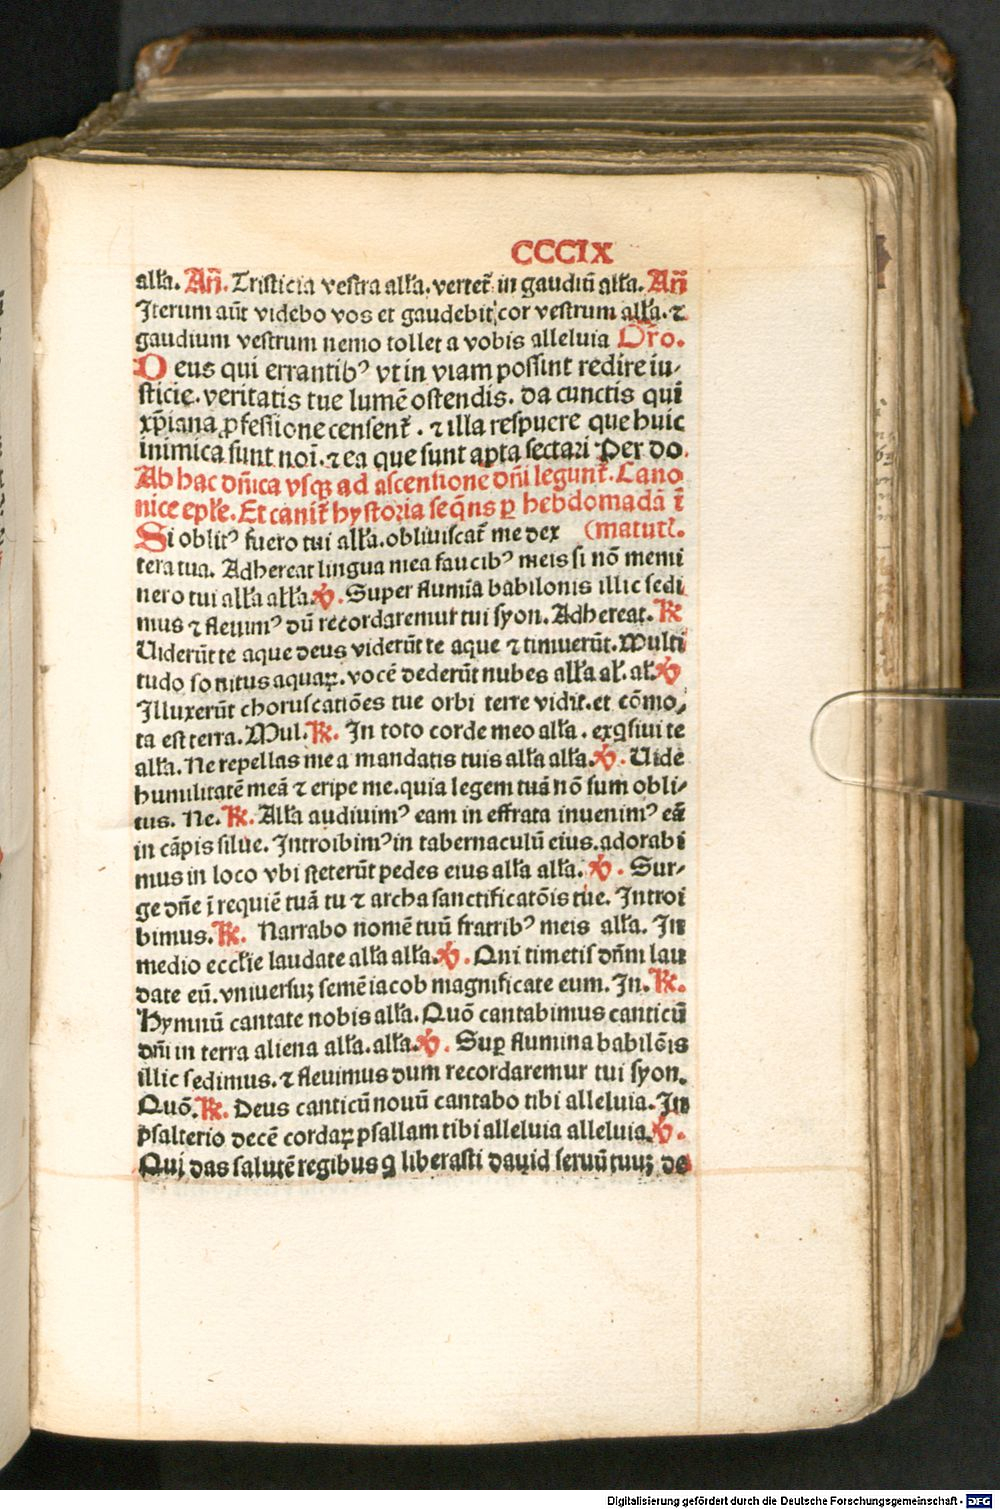 CCCIX
alła. Añ. Tristicia vestra alła. vertet̃ in gaudiũ alła. Añ
Iterum aũt videbo vos et gaudebit cor vestrum alła. ⁊
gaudium vestrum nemo tollet a vobis alleluia Oro.
Deus qui errantibꝰ vt in viam possint redire iu⸗
sticie. veritatis tue lumẽ ostendis. da cunctis qui
xp̃iana ꝓfessione censent̃. ⁊ illa respuere que huic
inimica sunt noĩ. ⁊ ea que sunt apta sectari Per do.
Ab hac dñica vsqꝫ ad ascentione dñi legunt̃. Cano
nice epłe. Et canit̃ hystoria seq̃ns ꝑ hebdomadã ĩ
Si oblitꝰ fuero tui alła. obliuiscat̃ me dex (matutł.
tera tua. Adhereat lingua mea faucibꝰ meis si nõ memi
nero tui alła alła. ℣. Super flumĩa babilonis illic sedi
mus ⁊ fleuimꝰ dũ recordaremur tui syon. Adhereat. ℟
Uiderũt te aque deus viderũt te aque ⁊ timuerũt. Multi
tudo sonitus aquaꝝ. vocẽ dederũt nubes alła ał. ał. ℣
Illuxerũt choruscatiões tue orbi terre vidit. et cõmo⸗
ta est terra. Mul. ℟. In toto corde meo alła. exq̃siui te
alła. Ne repellas me a mandatis tuis alła alła. ℣. Uide
humilitatẽ meã ⁊ eripe me. quia legem tuã nõ sum obli⸗
tus. Ne. ℟. Alła audiuimꝰ eam in effrata inuenimꝰ eã
in cãpis silue. Introibimꝰ in tabernaculũ eius. adorabi
mus in loco vbi steterũt pedes eius alła alła. ℣. Sur⸗
ge dñe ĩ requiẽ tuã tu ⁊ archa sanctificatõis tue. Introi
bimus. ℟. Narrabo nomẽ tuũ fratribꝰ meis alła. In
medio eccłie laudate alła alła. ℣. Qui timetis dñm lau
date eũ. vniuersuꝫ semẽ iacob magnificate eum. In. ℟.
Hymnũ cantate nobis alła. Quõ cantabimus canticũ
dñi in terra aliena alła. alła. ℣. Suꝑ flumina babilõis
illic sedimus. ⁊ fleuimus dum recordaremur tui syon.
Quõ. ℟. Deus canticũ nouũ cantabo tibi alleluia. In
psalterio decẽ cordaꝝ psallam tibi alleluia alleluia. ℣.
Qui das salutẽ regibus q̃ liberasti dauid seruũ tuuꝫ de
Digitalisierung gefördert durch die Deutsche Forschungsgemeinschaft - DFG